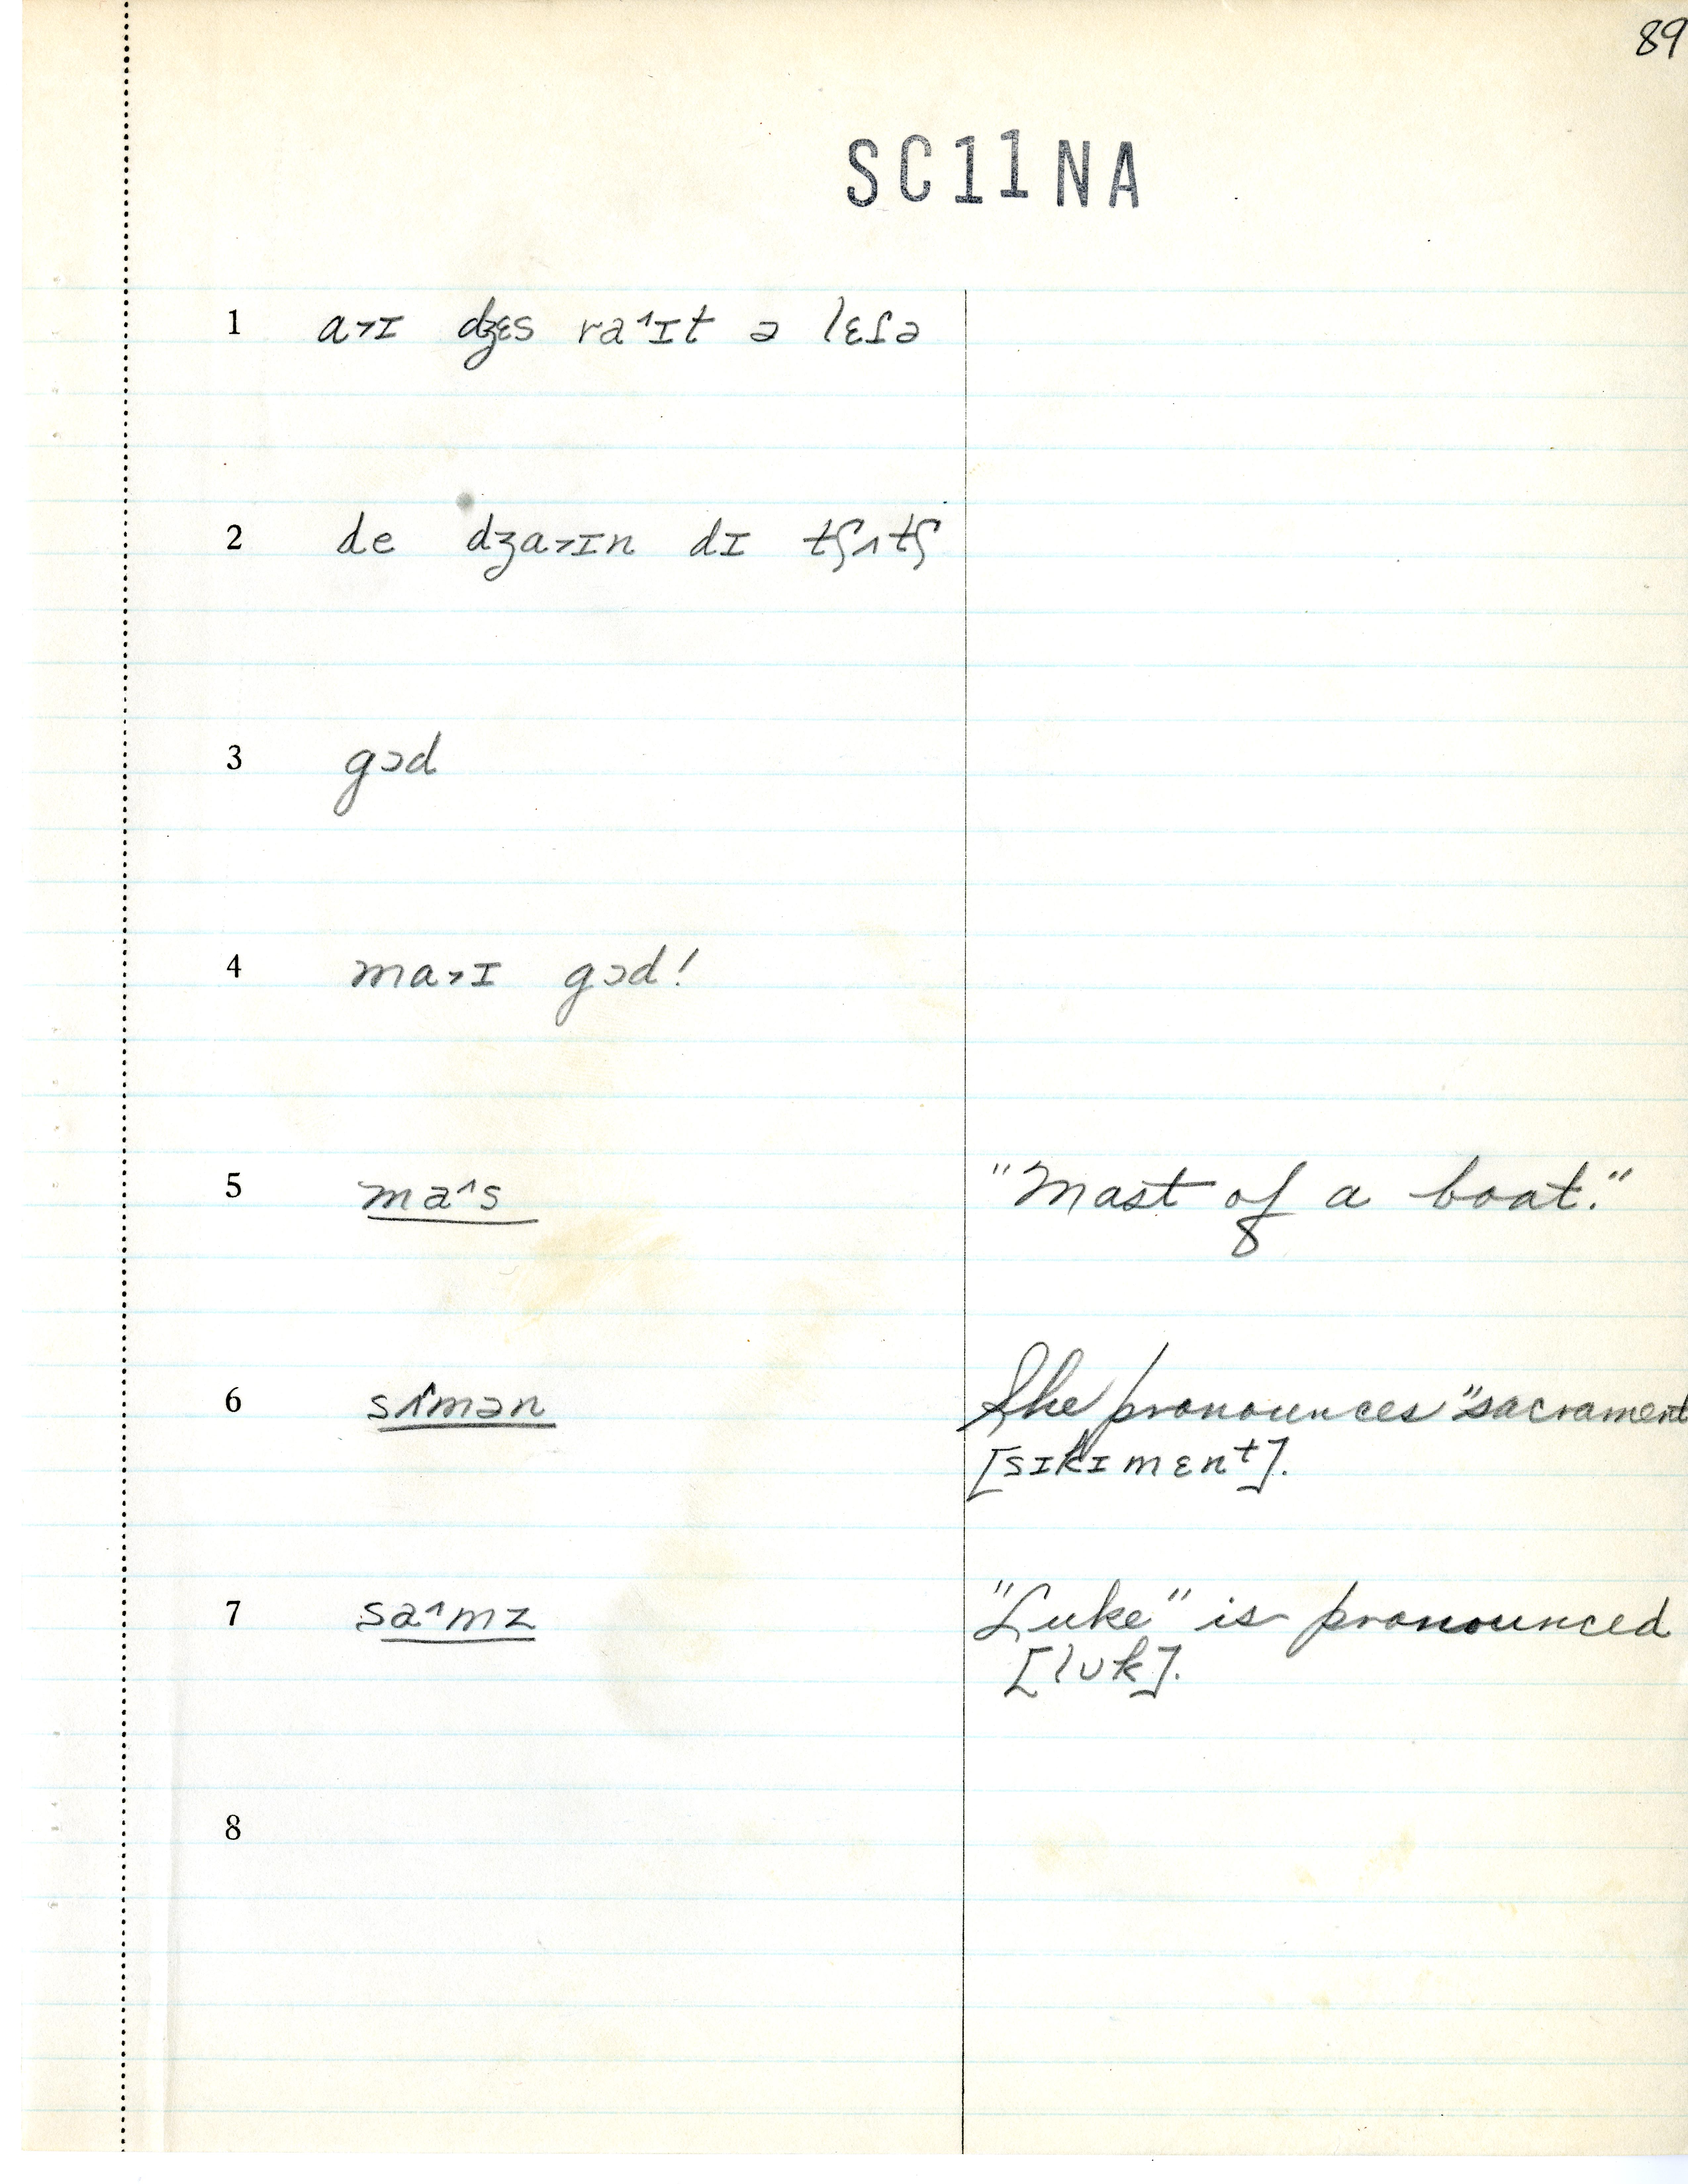 89
SC11NA
1 a˃ɪ dʒɛs ra˄ɪt ə lɛɾə
2 de dʒa˃ɪn dɪ tʃʌtʃ
3 gɔd
4 ma˃ɪ gɔd!
5 ma˄s "Mast of a boat."
6 sɜ˄mən She pronounces "sacrament
[sɪkɪmɛnt].
7 sa˄mz "Luke" is pronounced
[lʊk].
8